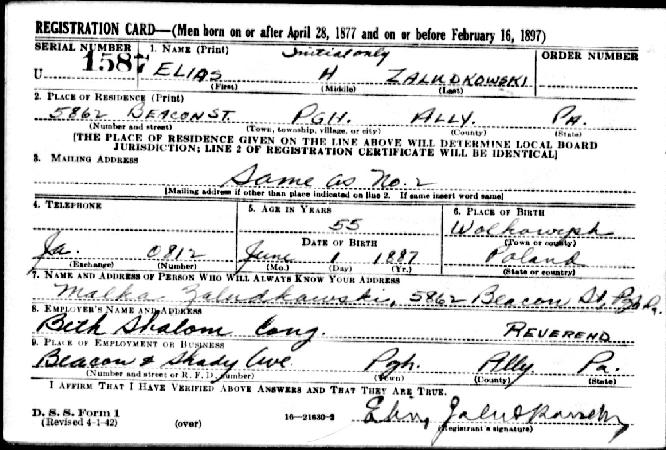 REGISTRATION CARD—(Men born on or after April 28, 1877 and on or before February 16, 1897)
SERIAL NUMBER 1. NAME (Print) Initial only ORDER NUMBER
U 1587 ELIAS H ZALUDKOWSKI
(First) (Middle) (Last)
2. PLACE OF RESIDENCE (Print)
5862 BEACON ST. PGH. ALLY. PA.
(Number and street) (Town, township, village, or city) (County) (State)
[THE PLACE OF RESIDENCE GIVEN ON THE LINE ABOVE WILL DETERMINE LOCAL BOARD
JURISDICTION; LINE 2 OF REGISTRATION CERTIFICATE WILL BE IDENTICAL]
3. MAILING ADDRESS
Same as No. 2
[Mailing address if other than place indicated on line 2. If same insert word same]
4. TELEPHONE 5. AGE IN YEARS 6. PLACE OF BIRTH
55 Wolkowysk
DATE OF BIRTH (Town or county)
Ja. 0812 June 1 1887 Poland
(Exchange) (Number) (Mo.) (Day) (Yr.) (State or country)
7. NAME AND ADDRESS OF PERSON WHO WILL ALWAYS KNOW YOUR ADDRESS
Malka Zaludkowski, 5862 Beacon St, Pgh Pa.
8. EMPLOYER'S NAME AND ADDRESS
Beth Shalom Cong. REVEREND
9. PLACE OF EMPLOYMENT OR BUSINESS
Beacon & Shady Ave Pgh. Ally Pa.
(Number and street or R. F. D. number) (Town) (County) (State)
I AFFIRM THAT I HAVE VERIFIED ABOVE ANSWERS AND THAT THEY ARE TRUE.
D. S. S. Form 1
(Revised 4-1-42) (over) 16—21630-2 Zaludkowski
(Registrant's signature)